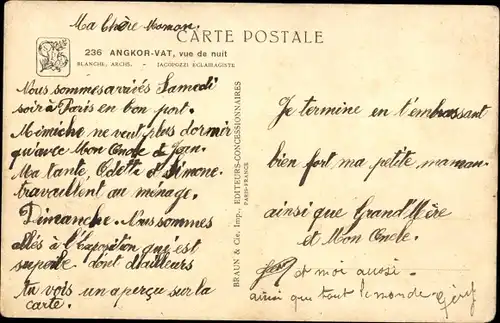 Ma Chère Maman.
CARTE POSTALE
236 ANGKOR-VAT, vue de nuit
BLANCHE, ARCHS. - JACOPOZZI ÉCLAIRAGISTE
Nous sommes arrivés Samedi
soir à Paris en bon port.
Mimiche ne veut plus dormir
qu'avec Mon Oncle et Jean.
Ma tante, Odette et Simone.
travaillent au ménage.
Dimanche. Nous sommes
allés à l'Exposition qui est
superbe dont d'ailleurs
tu vois un aperçu sur la
carte.
BRAUN & Cie, Imp., EDITEURS-CONCESSIONNAIRES
PARIS-FRANCE
Je termine en t'embrassant
bien fort, ma petite maman.
ainsi que Grand'Mère
et Mon Oncle.
et moi aussi.
ainsi que tout le monde